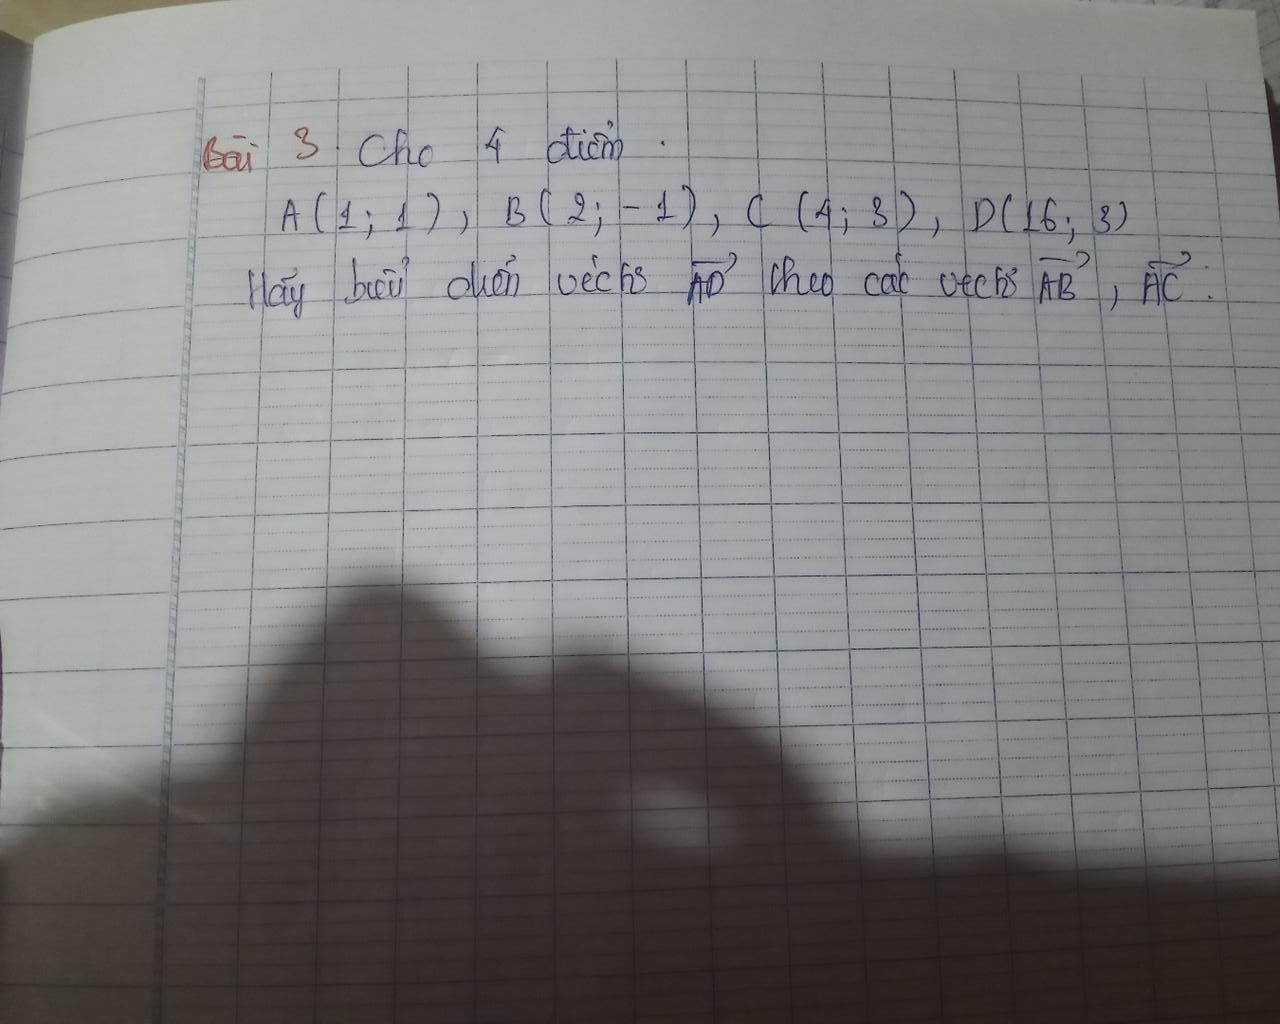 Bài 3 Cho 4 điểm.
A(1; 1), B(2; -1), C (4; 3), D(16; 3)
Hãy biểu diễn véctơ AD theo các vectơ AB, AC.